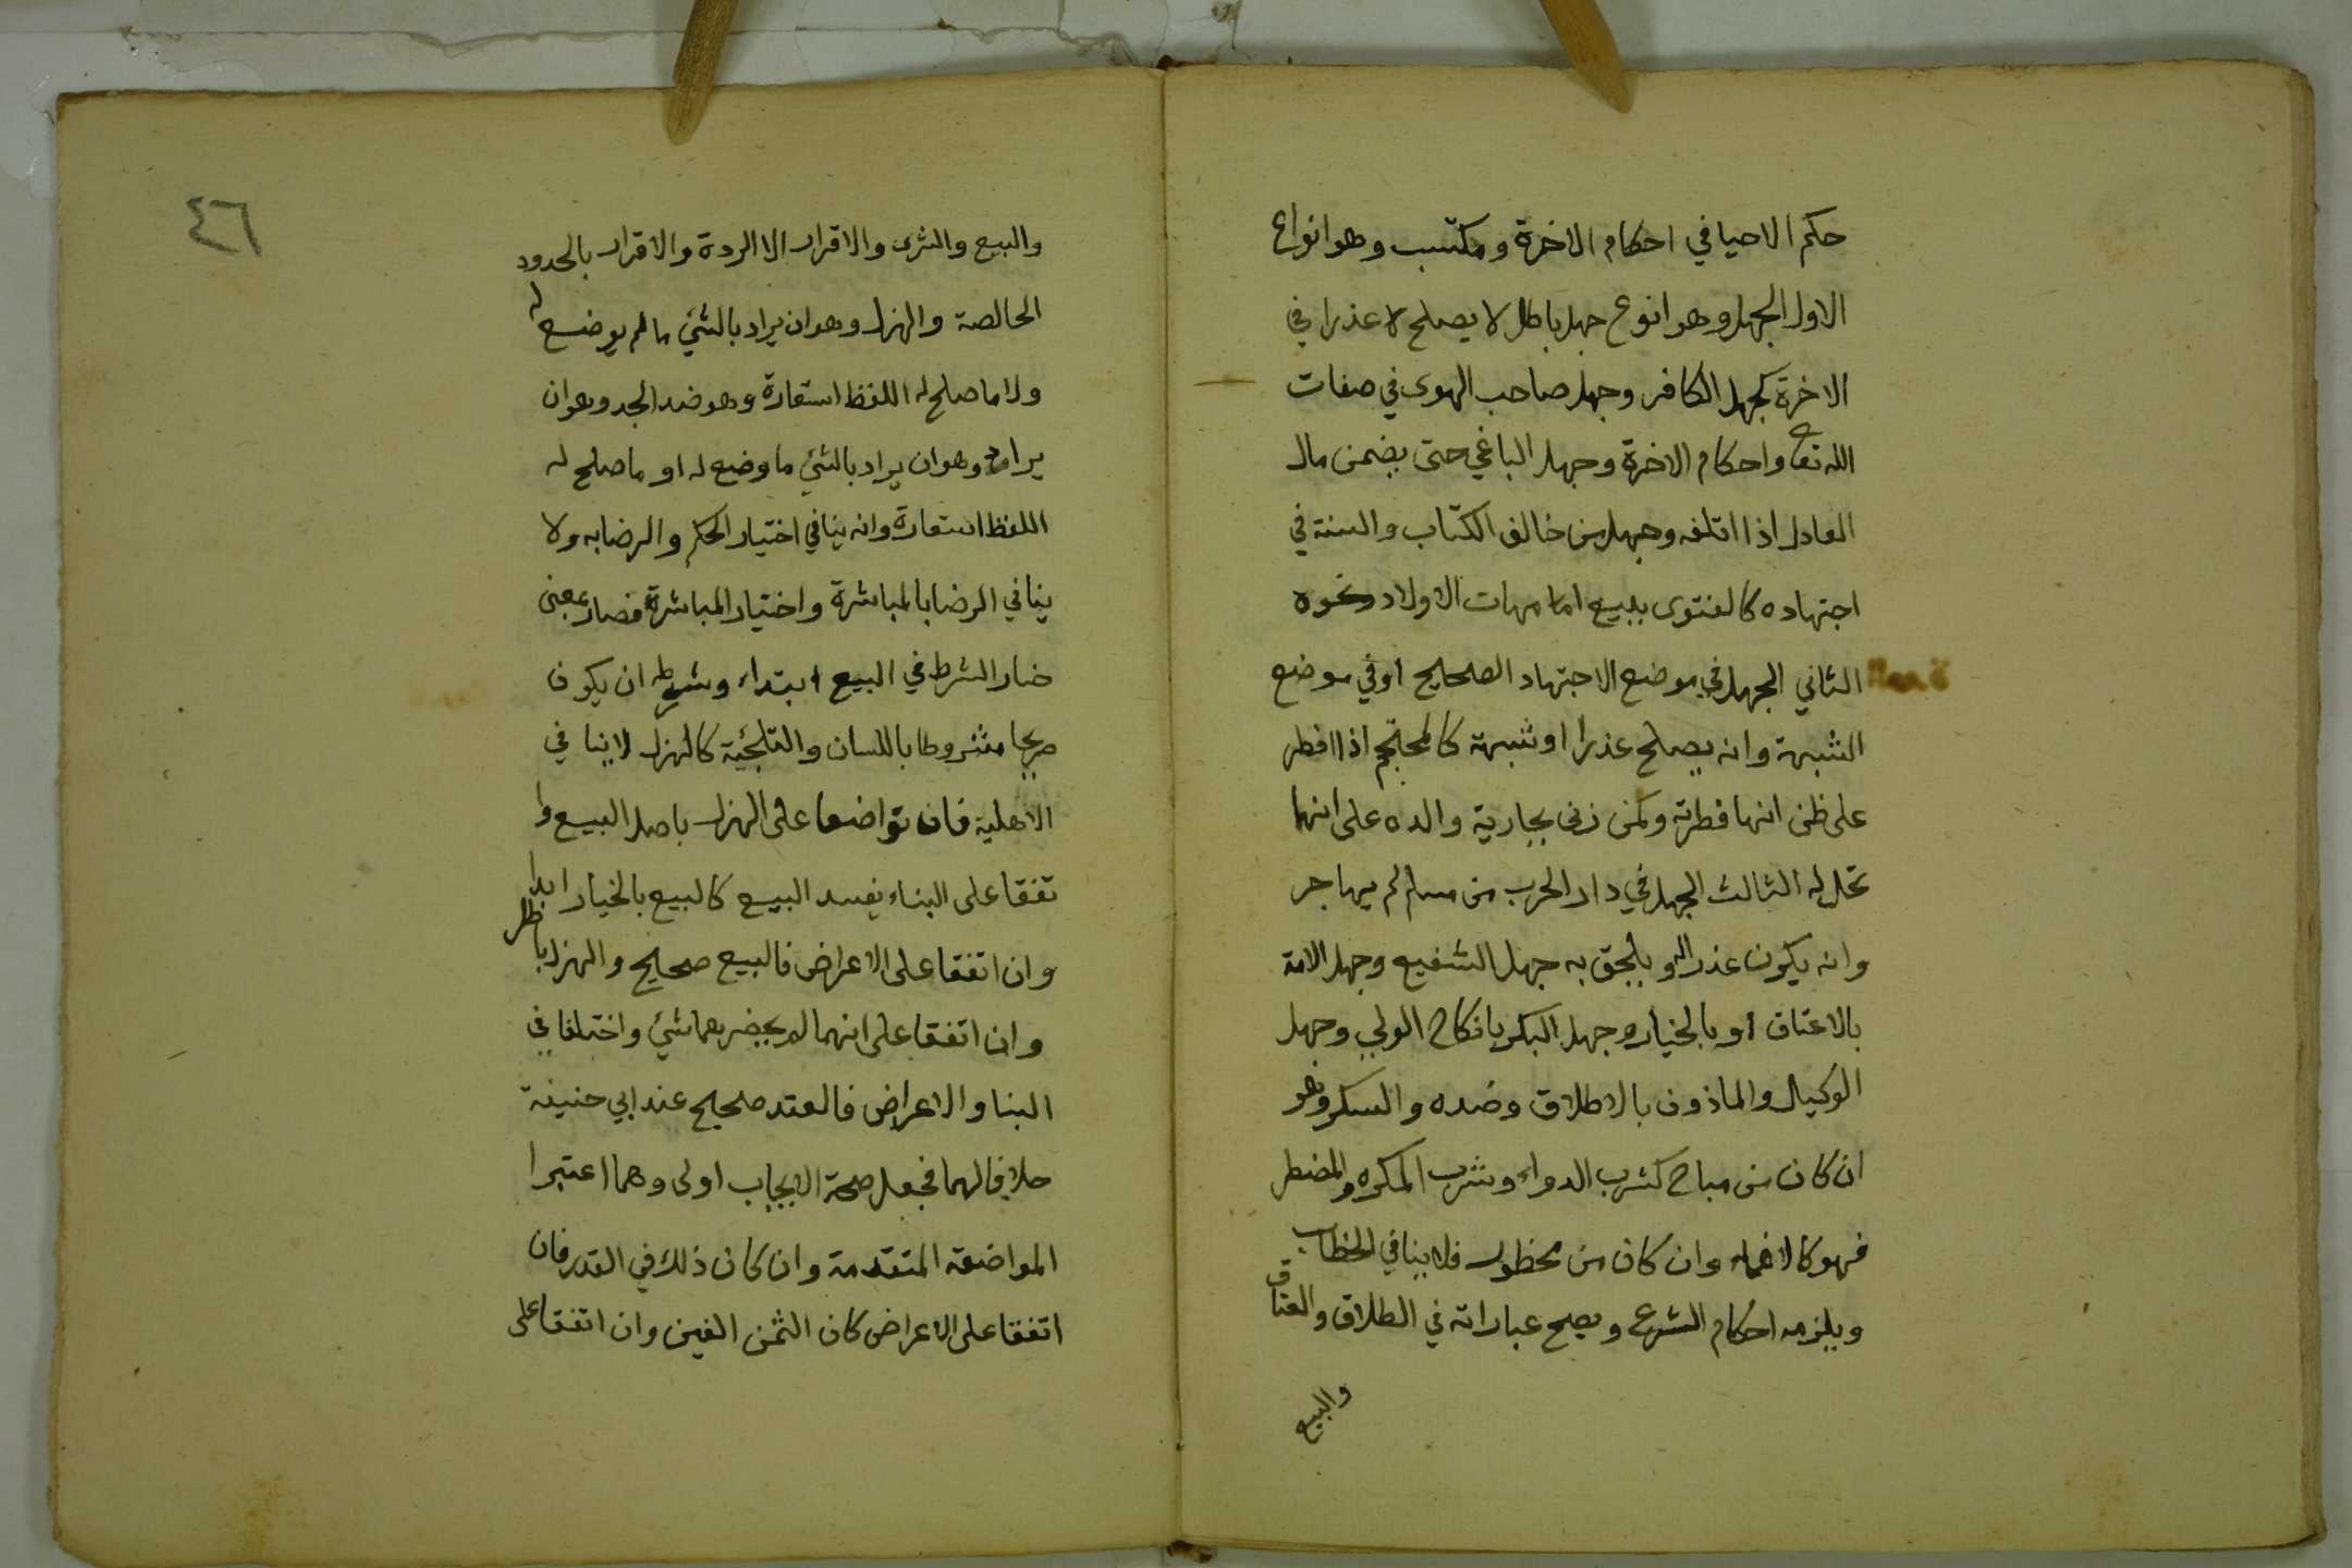 حكم الاحيا في احكام الاخرة ومكتسب وهو انواع
الاول الجهل وهو انوع جهل باطل لا يصلح لا عذرا في
الاخرة كجهل الكافر وجهل صاحب الهوى في صفات
الله تع واحكام الاخرة وجهل الباغي حتى يضمن مال
العادل اذا اتلفه وجهل من خالف الكتاب والسنة في
اجتهاده كالفتوى ببيع امهات الاولاد ونحوه
الثاني الجهل في موضع الاجتهاد الصحيح او في موضع
الشبهة وانه يصلح عذرا او شبهة كالمحتجم اذا افطر
على ظن انها فطرته وكمن زنى بجارية والده على انها
تحل له الثالث الجهل في دار الحرب من مسلم لم يهاجر
وانه يكون عذرا له ويلحق به جهل الشفيع وجهل الامة
بالاعتاق او بالخيار وجهل البكر بانكاح الولي وجهل
الوكيل والماذون بالاطلاق وضده والسكر وهو
ان كان من مباح كشرب الدواء وشرب المكره والمضطر
فهو كالاغماء وان كان من محظور فلا ينافي الخطاب
ويلزمه احكام الشرع ويصح عباراته في الطلاق والعتاق
والبيع
٤٦
والبيع والشرى والاقرار الا الردة والاقرار بالحدود
الخالصة والهزل وهو ان يراد بالشئ ما لم يوضع له
ولا ما صلح له اللفظ استعارة وهو ضد الجد وهو ان
يراد وهو ان يراد بالشئ ما وضع له او ما صلح له
اللفظ استعارة وانه ينافي اختيار الحكم والرضا به ولا
ينافي الرضا بالمباشرة واختيار المباشرة فصار بمعنى
خيار الشرط في البيع ابتداء وشرطه ان يكون
صريحا مشروطا باللسان والتلجئة كالهزل لا ينافي
الاهلية فان تواضعا على الهزل باصل البيع وا
تفقا على البناء يفسد البيع كالبيع بالخيار ابدا
وان اتفقا على الاعراض فالبيع صحيح والهزل باطل
وان اتفقا على انهما لم يحضرهما شئ واختلفا في
البنا والاعراض فالعقد صحيح عند ابي حنيفة
خلافا لهما فجعل صحة الايجاب اولى وهما اعتبرا
المواضعة المتقدمة وان كان ذلك في القدر فان
اتفقا على الاعراض كان الثمن الفين وان اتفقا على